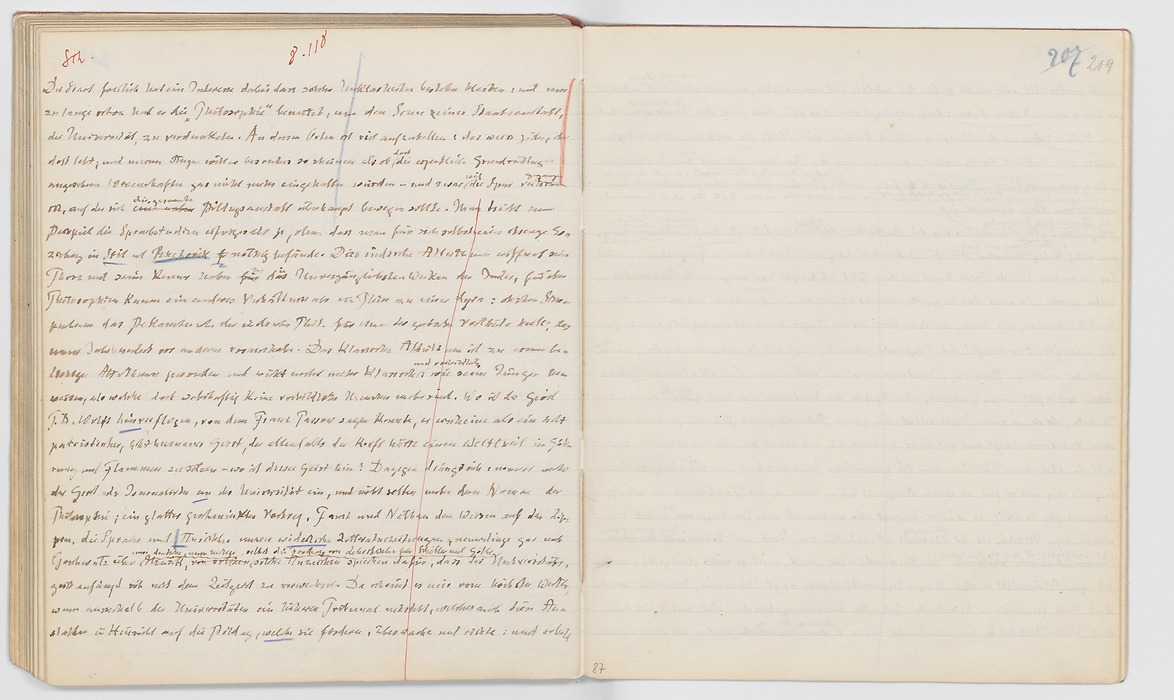 Sch.
8.118
207 209
Der Staat freilich hat ein Interesse dabei dass solche Unklarheiten bestehen bleiben: und nur
zu lange schon hat er die „Philosophie" benutzt, um den Sinn seiner Staatsanstalt,
der Universität, zu verdunkeln. An diesen Orten ist viel aufzuhellen: das weiss jeder, der
dort lebt; und meinem Auge wollte es besonders so scheinen als ob dort die eigentliche Grundrichtung
angesehener Wissenschaften gar nicht mehr eingehalten würde – und zwar die Spur
ist, auf der sich die gesammte Bildungsanstalt überhaupt bewegen sollte. Man treibt zum
Beispiel die Sprachstudien ohne dass man für sich selbst eine strenge Er-
ziehung in Stil und Rhetorik nöthig befände. Das indische Alterthum eröffnet seine
Thore und seine Kenner haben zu den Unvergänglichsten Werken der Inder, zu ihren
Philosophien kaum ein anderes Verhältniss als ein Thier zu einer Lyra: obschon Scho-
penhauer das Bekanntwerden der indischen Phil. für einen der grössten Vortheile hielt, das
unser Jahrhundert vor anderen voraushabe. Das klassische Alterthum ist zu einem be-
liebigen Alterthum geworden und wirkt nicht mehr klassisch und vorbildlich; wie seine Jünger be-
weisen, als welche doch wahrhaftig keine vorbildlichen Menschen sind. Wo ist der Geist
F. A. Wolfs hinverflogen, von dem Franz Passow sagen konnte, er erscheine als ein ächt
patriotischer, ächt humaner Geist, der allenfalls die Kraft hätte einen Welttheil in Gäh-
rung und Flammen zu setzen – wo ist dieser Geist hin? Dagegen drängt sich immer mehr
der Geist der Journalisten an der Universität ein, und nicht selten unter dem Namen der
Philosophie; ein glatter geschminkter Vortrag, Faust und Nathan den Weisen auf den Lip-
pen, die Sprache und Ansichten unsrer widerlichen Litteraturzeitungen, neuerdings gar noch
Geschwätz über Musik, selbst die Forderung von Lehrstühlen für Schiller und Göthe,
solche Anzeichen sprechen dafür, dass der Universitäts-
geist anfängt sich mit dem Zeitgeist zu verwechseln. Da scheint es mir vom höchsten Werthe,
wenn ausserhalb der Universitäten ein höheres Tribunal entsteht, welches auch diese An-
stalten in Hinsicht auf die Bildung, welche sie fördern, überwache und richte: und sobald
87